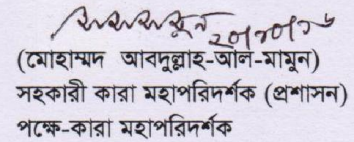 (মোহাম্মদ আবদুল্লাহ-আল-মামুন)
সহকারী কারা মহাপরিদর্শক (প্রশাসন)
পক্ষে-কারা মহাপরিদর্শক